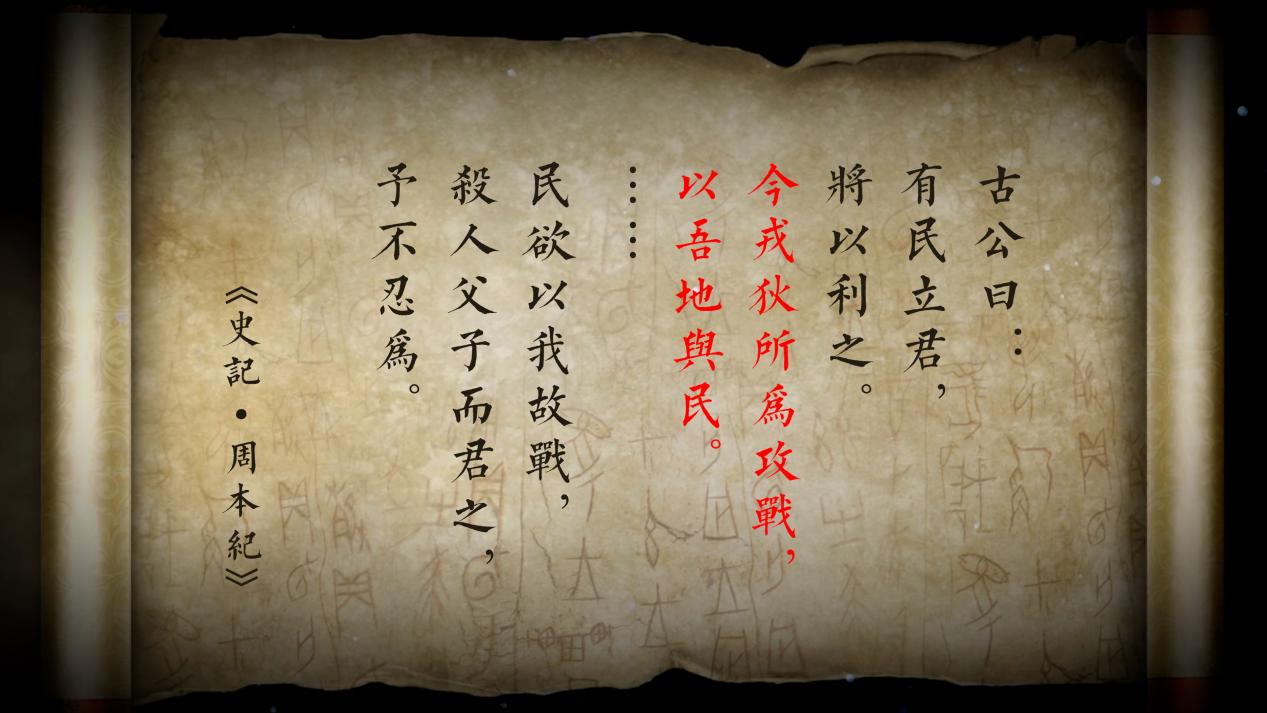 古公曰：
有民立君，
將以利之。
今戎狄所爲攻戰，
以吾地與民。
……
民欲以我故戰，
殺人父子而君之，
予不忍爲。
《史記·周本紀》